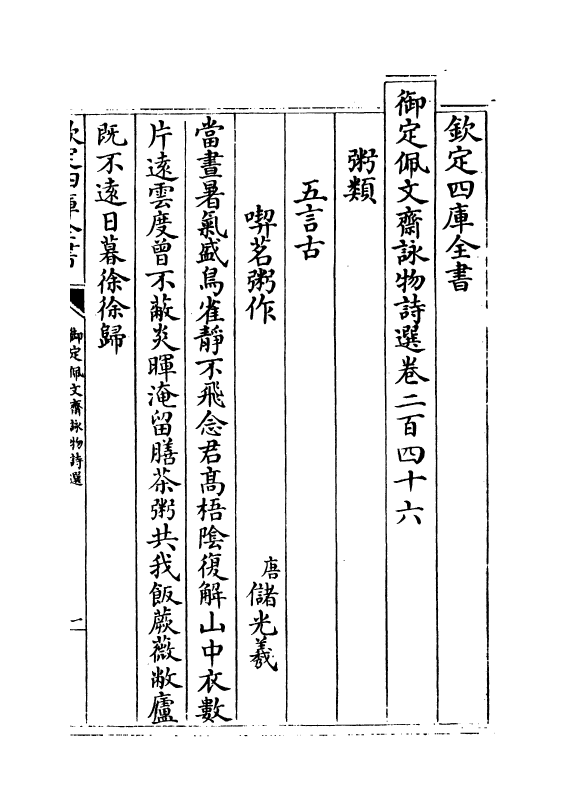 欽定四庫全書
御定佩文齋詠物詩選卷二百四十六
粥類
五言古
喫茗粥作　唐儲光羲
當晝暑氣盛鳥雀靜不飛念君髙梧陰復解山中衣數
片遠雲度曾不蔽炎暉淹留膳茶粥共我飯蕨薇敝廬
既不遠日暮徐徐歸
欽定四庫全書
御定佩文齋詠物詩選
一